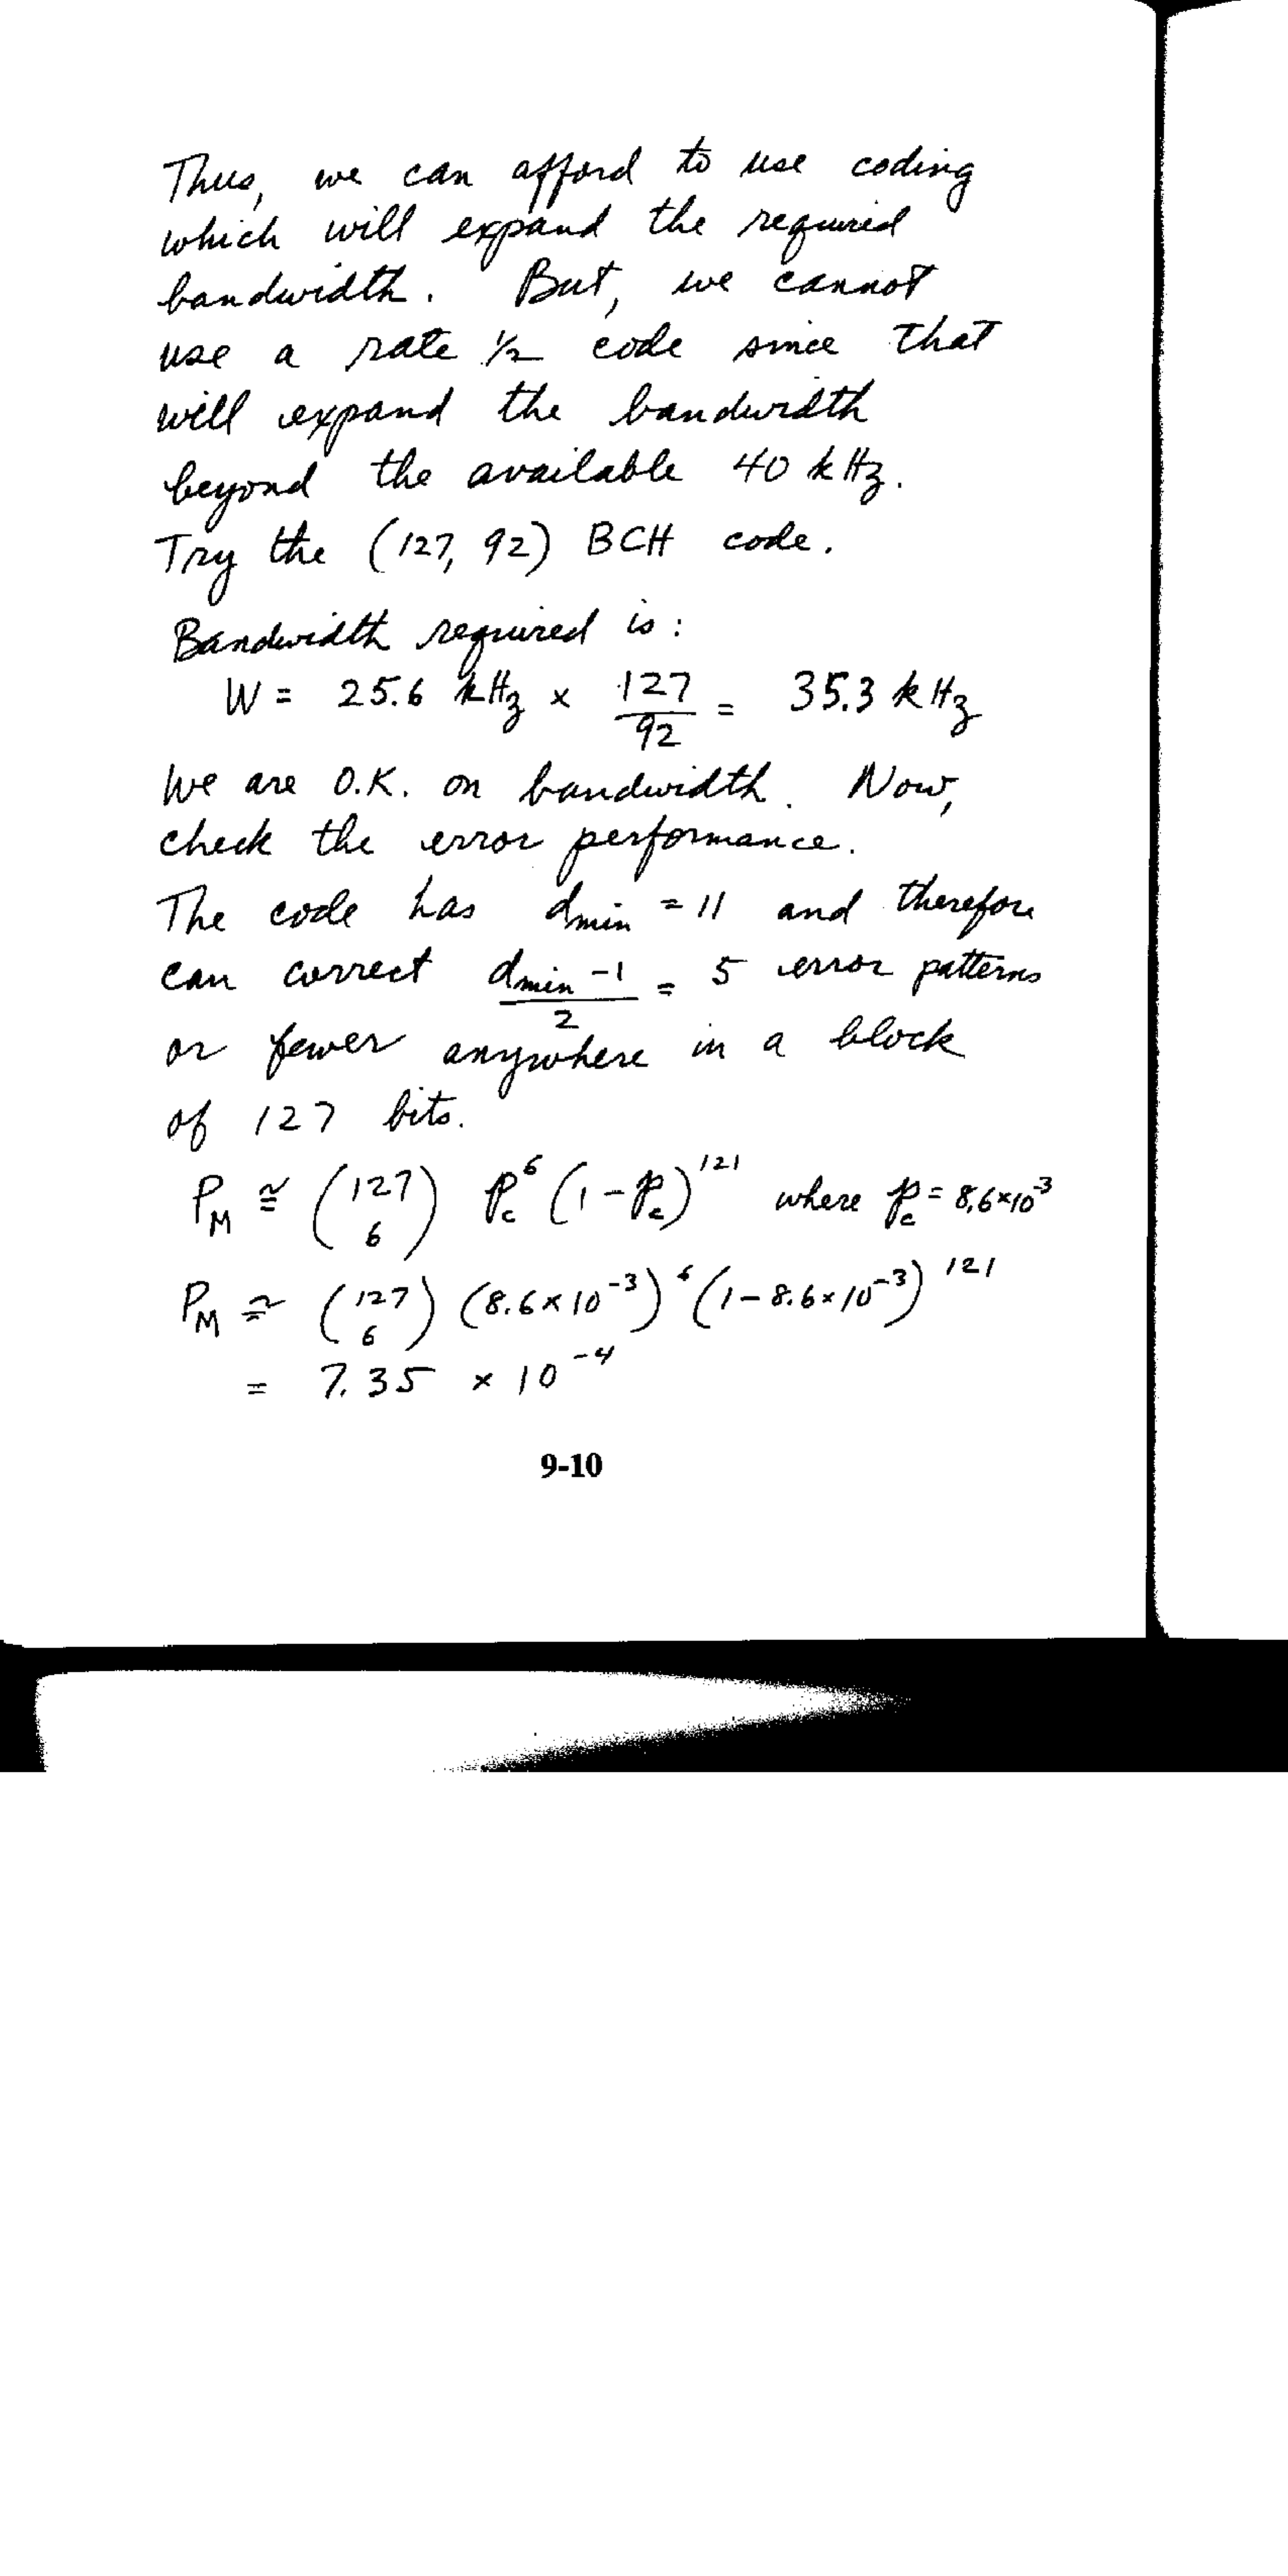 Thus, we can afford to use coding
which will expand the required
bandwidth. But, we cannot
use a rate 1/2 code since that
will expand the bandwidth
beyond the available 40 kHz.
Try the (127, 92) BCH code.
Bandwidth required is:
W = 25.6 kHz × 127/92 = 35.3 kHz
We are O.K. on bandwidth. Now,
check the error performance.
The code has d_min = 11 and therefore
can correct (d_min - 1)/2 = 5 error patterns
or fewer anywhere in a block
of 127 bits.
P_M ≅ (127 6) p_c^6 (1 - p_c)^121 where p_c = 8.6×10^-3
P_M ≅ (127 6) (8.6×10^-3)^6 (1 - 8.6×10^-3)^121
= 7.35 × 10^-4
9-10